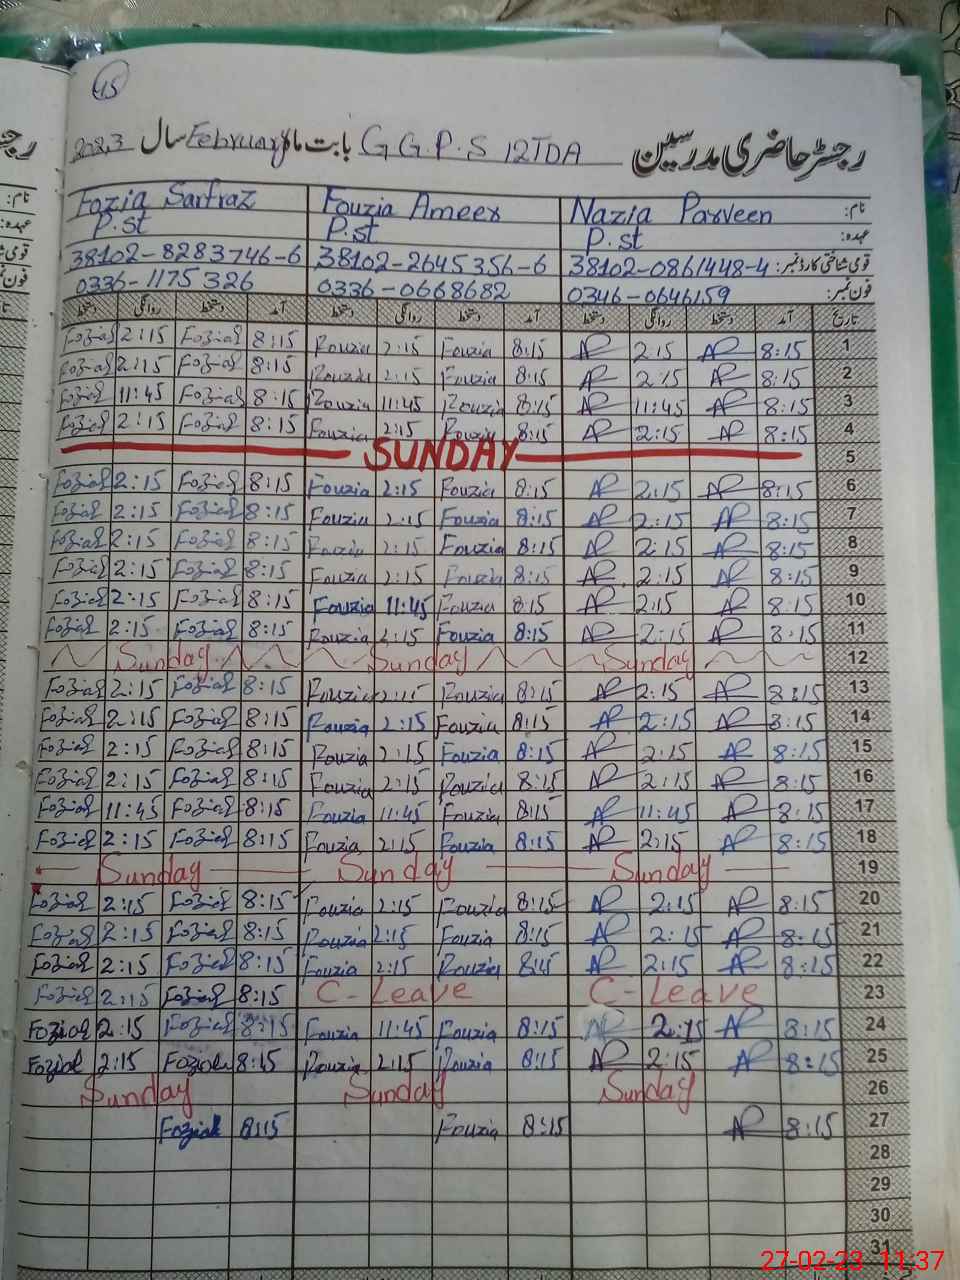 45
رجسٹر حاضری مدرسین G.G.P.S 12TDA بابت ماہ February سال 2023
Fozia Sarfraz Fouzia Ameer Nazia Parveen نام:
P.st P.st P.st عہدہ:
38102-8283746-6 38102-2645356-6 38102-0861448-4 قومی شناختی کارڈ نمبر:
0336-1175326 0336-0668682 0346-0646159 فون نمبر:
دستخط روانگی دستخط آمد دستخط روانگی دستخط آمد دستخط روانگی دستخط آمد تاریخ
Foziaf 2:15 Foziaf 8:15 Fouzia 2:15 Fouzia 8:15 AP 2:15 AP 8:15 1
Foziaf 2:15 Foziaf 8:15 Fouzia 2:15 Fouzia 8:15 AP 2:15 AP 8:15 2
Foziaf 11:45 Foziaf 8:15 Fouzia 11:45 Fouzia 8:15 AP 11:45 AP 8:15 3
Foziaf 2:15 Foziaf 8:15 Fouzia 2:15 Fouzia 8:15 AP 2:15 AP 8:15 4
SUNDAY 5
Foziaf 2:15 Foziaf 8:15 Fouzia 2:15 Fouzia 8:15 AP 2:15 AP 8:15 6
Foziaf 2:15 Foziaf 8:15 Fouzia 2:15 Fouzia 8:15 AP 2:15 AP 8:15 7
Foziaf 2:15 Foziaf 8:15 Fouzia 2:15 Fouzia 8:15 AP 2:15 AP 8:15 8
Foziaf 2:15 Foziaf 8:15 Fouzia 2:15 Fouzia 8:15 AP 2:15 AP 8:15 9
Foziaf 2:15 Foziaf 8:15 Fouzia 11:45 Fouzia 8:15 AP 2:15 AP 8:15 10
Foziaf 2:15 Foziaf 8:15 Fouzia 2:15 Fouzia 8:15 AP 2:15 AP 8:15 11
Sunday Sunday Sunday 12
Foziaf 2:15 Foziaf 8:15 Fouzia 2:15 Fouzia 8:15 AP 2:15 AP 8:15 13
Foziaf 2:15 Foziaf 8:15 Fouzia 2:15 Fouzia 8:15 AP 2:15 AP 8:15 14
Foziaf 2:15 Foziaf 8:15 Fouzia 2:15 Fouzia 8:15 AP 2:15 AP 8:15 15
Foziaf 2:15 Foziaf 8:15 Fouzia 2:15 Fouzia 8:15 AP 2:15 AP 8:15 16
Foziaf 11:45 Foziaf 8:15 Fouzia 11:45 Fouzia 8:15 AP 11:45 AP 8:15 17
Foziaf 2:15 Foziaf 8:15 Fouzia 2:15 Fouzia 8:15 AP 2:15 AP 8:15 18
Sunday Sunday Sunday 19
Foziaf 2:15 Foziaf 8:15 Fouzia 2:15 Fouzia 8:15 AP 2:15 AP 8:15 20
Foziaf 2:15 Foziaf 8:15 Fouzia 2:15 Fouzia 8:15 AP 2:15 AP 8:15 21
Foziaf 2:15 Foziaf 8:15 Fouzia 2:15 Fouzia 8:15 AP 2:15 AP 8:15 22
Foziaf 2:15 Foziaf 8:15 C-Leave C-Leave 23
Foziaf 2:15 Foziaf 8:15 Fouzia 11:45 Fouzia 8:15 AP 2:15 AP 8:15 24
Foziaf 2:15 Foziaf 8:15 Fouzia 2:15 Fouzia 8:15 AP 2:15 AP 8:15 25
Sunday Sunday Sunday 26
Foziaf 8:15 Fouzia 8:15 AP 8:15 27
28
29
30
31
27-02-23 11:37